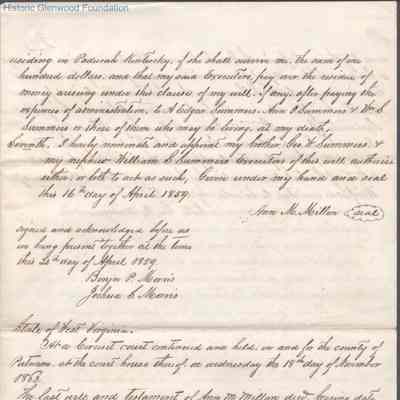 Historic Glenwood Foundation.
residing in Paducah Kentucky, if she shall survive me, the sum of one
hundred dollars, and that my said Executors, pay over the residue of
money arising under this clause of my will, if any, after paying the
expenses of administration, to A Edgar Summers, Ann O Summers & Wm S
Summers or those of them who may be living at my death,
Seventh, I hereby nominate and appoint my brother Geo W Summers, &
my nephew William S Summers Executors of this will authorise
either, or both to act as such, Given under my hand and seal
this 16th day of April 1859.
Ann M. Millan seal
signed and acknowledged before us
we being present together at the time
this 20th day of April 1859.
Benjn P. Morris
Joshua L Morris
State of West Virginia.
At a Circuit court continued and held, in and for the county of
Putnam, at the court house thereof on wednesday the 18th day of November
1868.
The last will and testament of Ann M Millan decd. bearing date